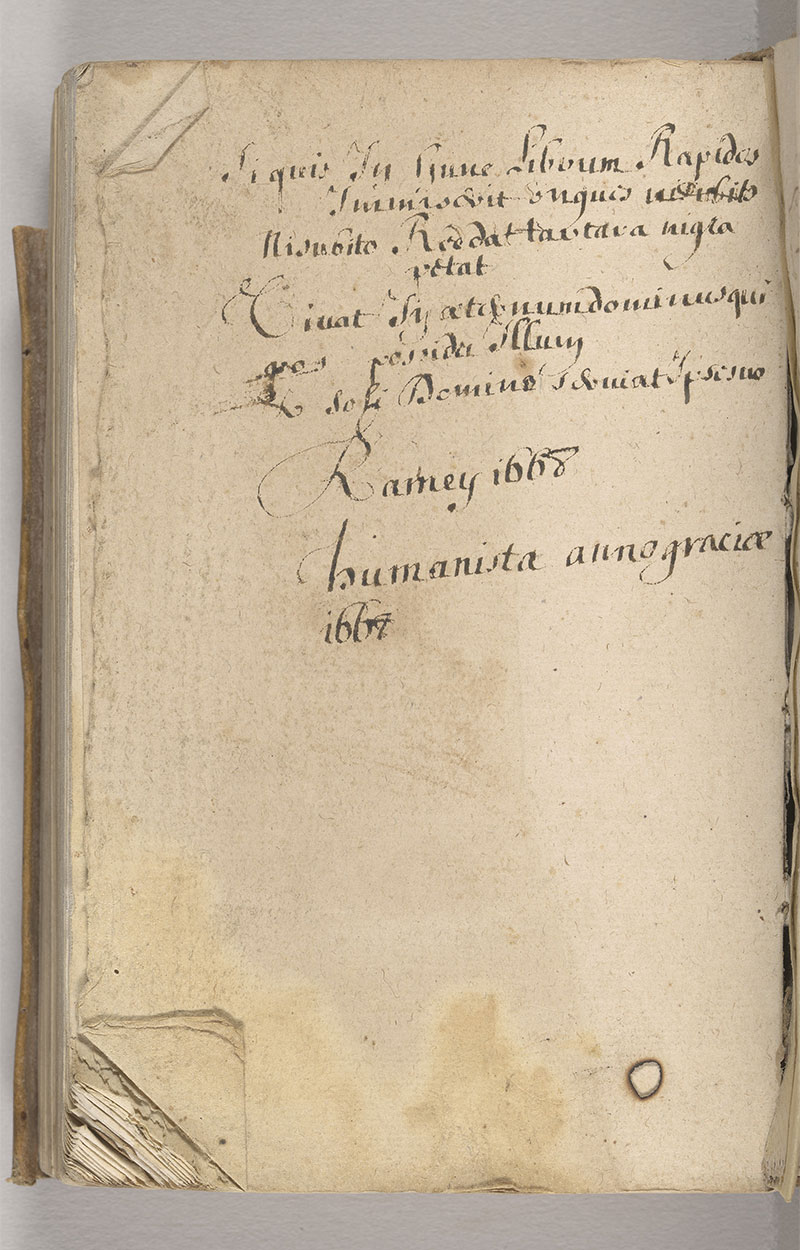 Si quis In Hunc Librum Rapides
Inmiserit ungues
Ni subito Reddat tartara nigra
petat
Vivat In æternum dominus qui
possidet Illum
soli Domino serviat Ipse suo
Ramey 1668
humanista anno graciæ
1667